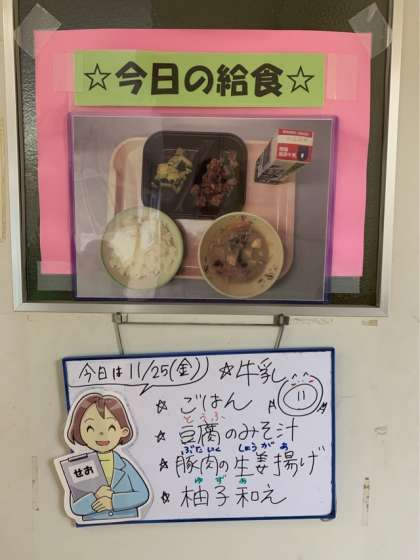 ☆今日の給食☆
今日は11/25(金)
☆牛乳
11
☆ごはん
とうふ
☆豆腐のみそ汁
ぶたにく しょうがあ
☆豚肉の生姜揚げ
ゆずあ
☆柚子和え
せお